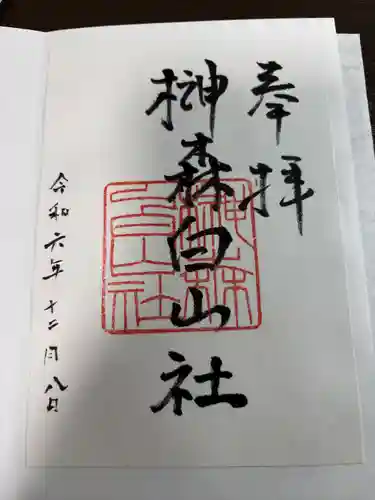 奉拝
榊森白山社
令和六年十二月八日